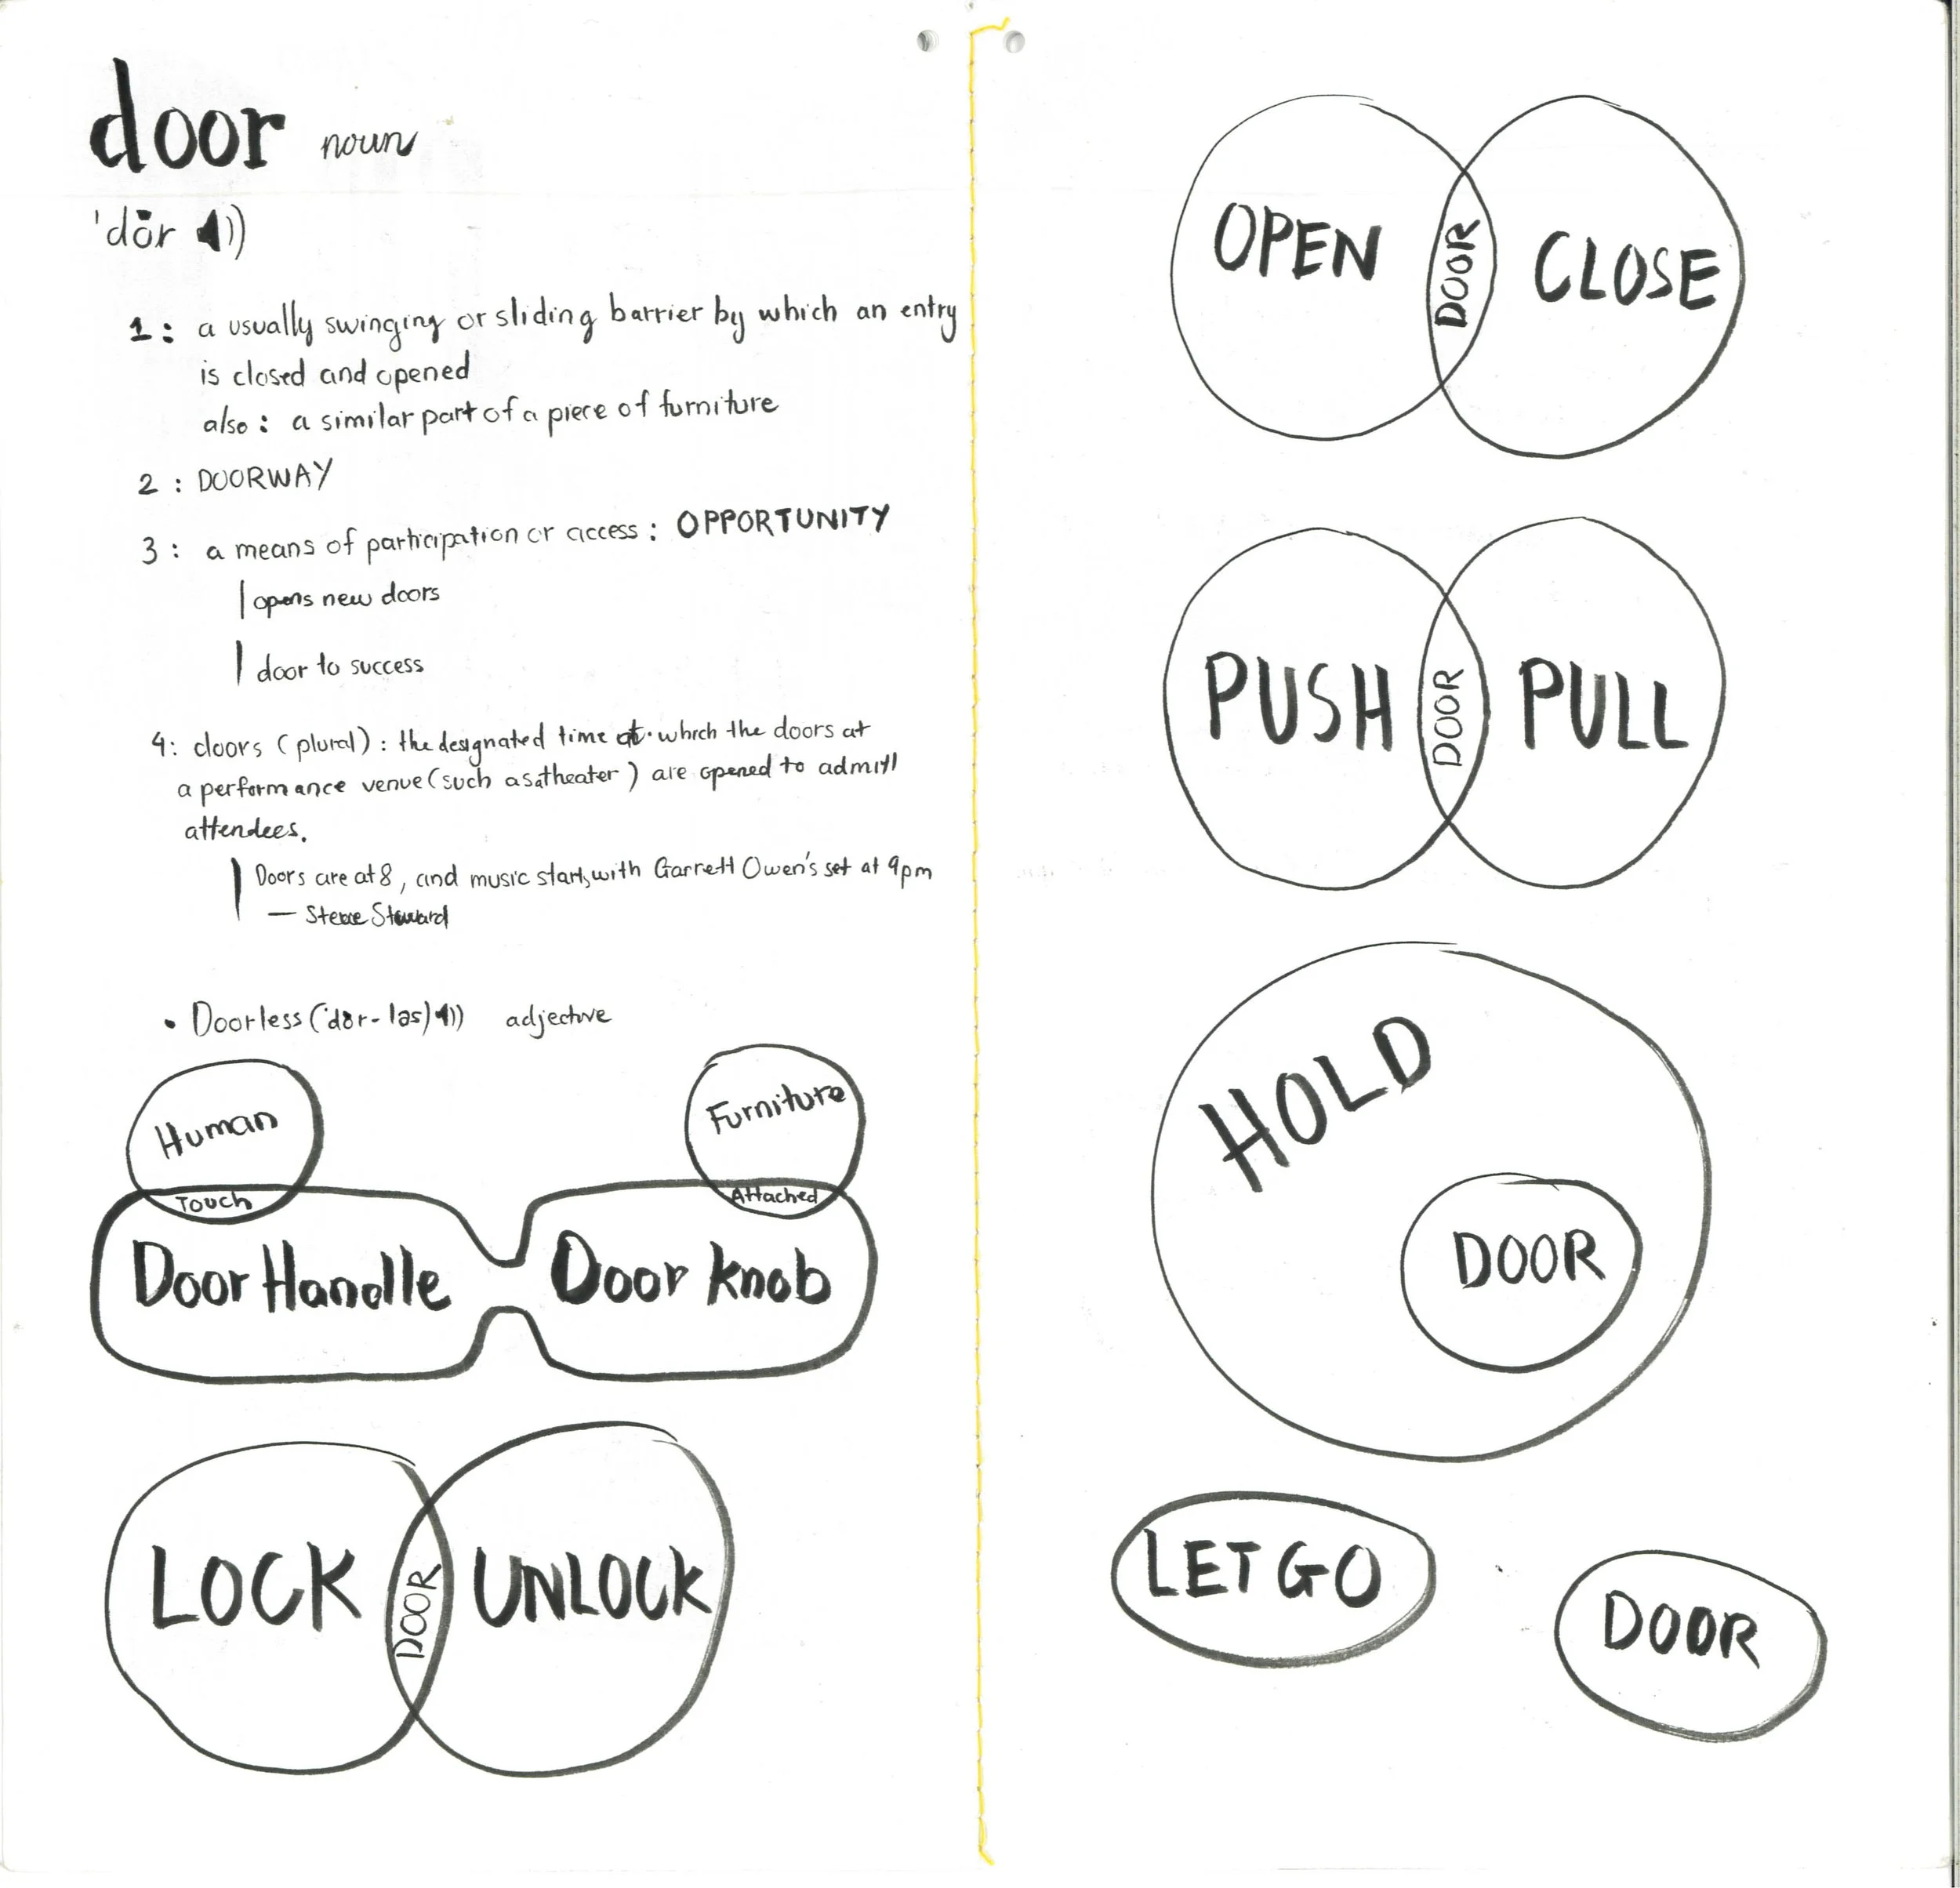 door noun
'dȯr
1: a usually swinging or sliding barrier by which an entry
is closed and opened
also: a similar part of a piece of furniture
2: DOORWAY
3: a means of participation or access: OPPORTUNITY
opens new doors
door to success
4: doors (plural): the designated time at which the doors at
a performance venue (such as a theater) are opened to admit
attendees.
Doors are at 8, and music starts with Garrett Owen's set at 9pm
— Steve Steward
• Doorless ('dȯr-ləs) adjective
Human
Furniture
Touch
Attached
Door Handle
Door knob
LOCK
DOOR
UNLOCK
OPEN
DOOR
CLOSE
PUSH
DOOR
PULL
HOLD
DOOR
LET GO
DOOR